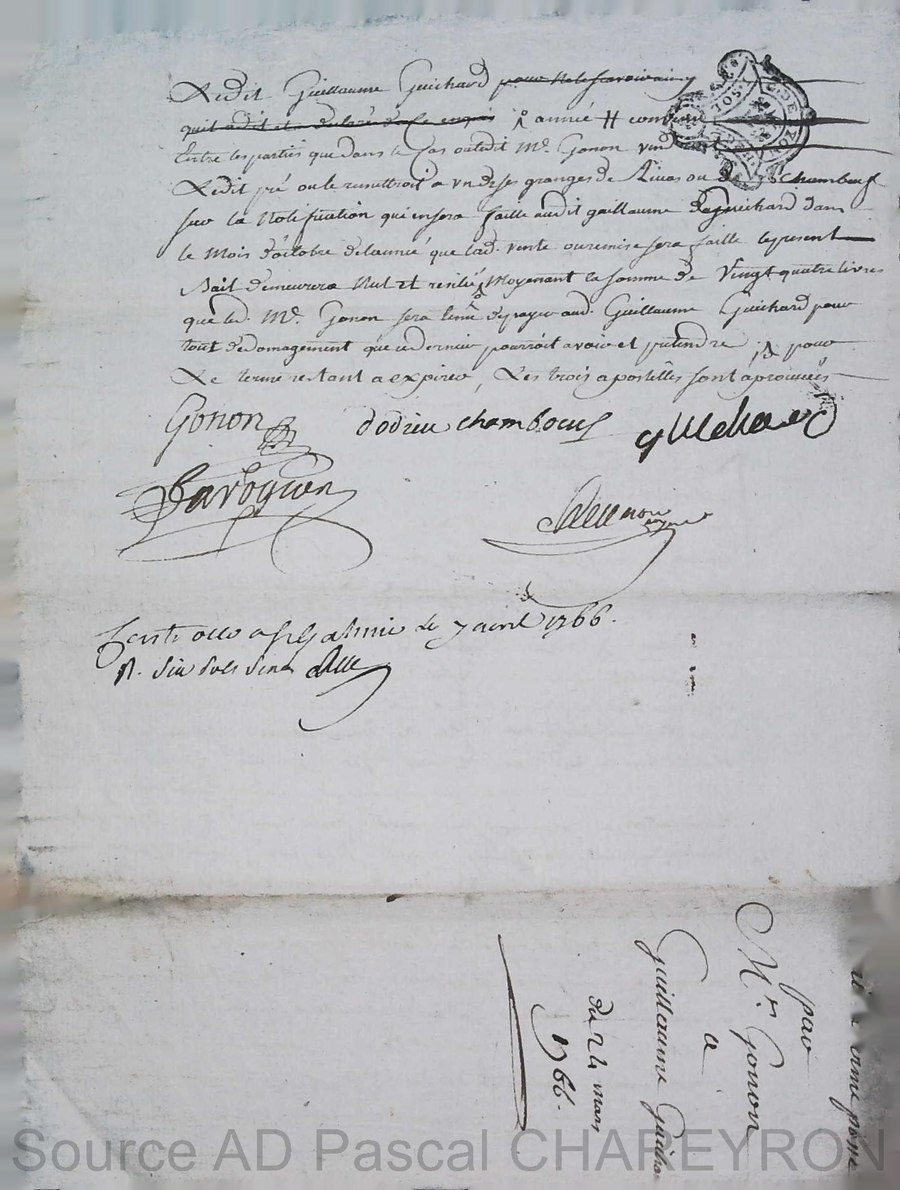 Ledit Guillaume Guichard
quil a dit et declaré année # convenu
Entre les parties que dans le Cas ou ledit Mr. Gonon vin
Ledit pré ou le remettroit a un de ses granges de Rivas ou de Chambeuf
sur la Notification qui en sera faitte audit guillaume Guichard dans
le Mois d'octobre de lannée que lad. vente ou remise sera faitte le present
Bail demeurera Nul et resilié Moyenant la somme de Vingt quatre livres
que led. Mr. Gonon sera tenu de payer aud. Guillaume Guichard pour
tout dedomagement que ce dernier pourroit avoir et pretendre pour
Le terme restant a expirer, Les trois apostilles sont aprouvées
Gonon dodieu chamboeuf
Javoguen
Controllé a St Galmier le 7 avril 1766.
R. six sols six d
par
Mr. Gonon
a
Guillaume Guicha
du 24 mars
1766.
Source AD Pascal CHAREYRON